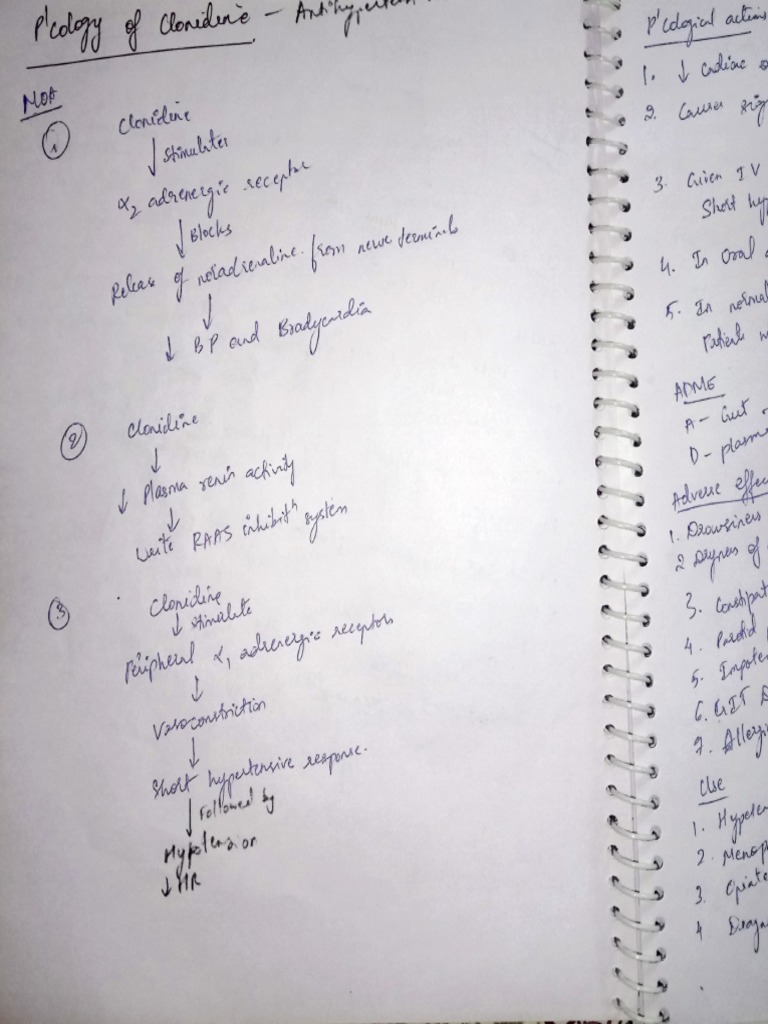 P'cology of Clonidine - Antihypertens
MOA
1
Clonidine
↓ Stimulates
α2 adrenergic receptor
↓ Blocks
Release of noradrenaline from nerve terminals
↓
↓ BP and Bradycardia
2
Clonidine
↓
↓ Plasma renin activity
↓
Write RAAS inhibitⁿ system
3
Clonidine
↓ stimulate
Peripheral α1 adrenergic receptors
↓
Vasoconstriction
↓
Short hypertensive response.
↓ Followed by
Hypotension
↓ HR
P'cological actions
1. ↓ Cardiac o
2. Causes sig
3. Given IV
Short hyp
4. In Oral
5. In normal
Patients w
ADME
A - Gut -
D - plasm
Adverse effec
1. Drowsiness
2 Dryness of
3. Constipat
4. Parotid
5. Impoten
6. GIT D
7. Allergi
Use
1. Hyperten
2. Menop
3. Opiate
4 Diagn